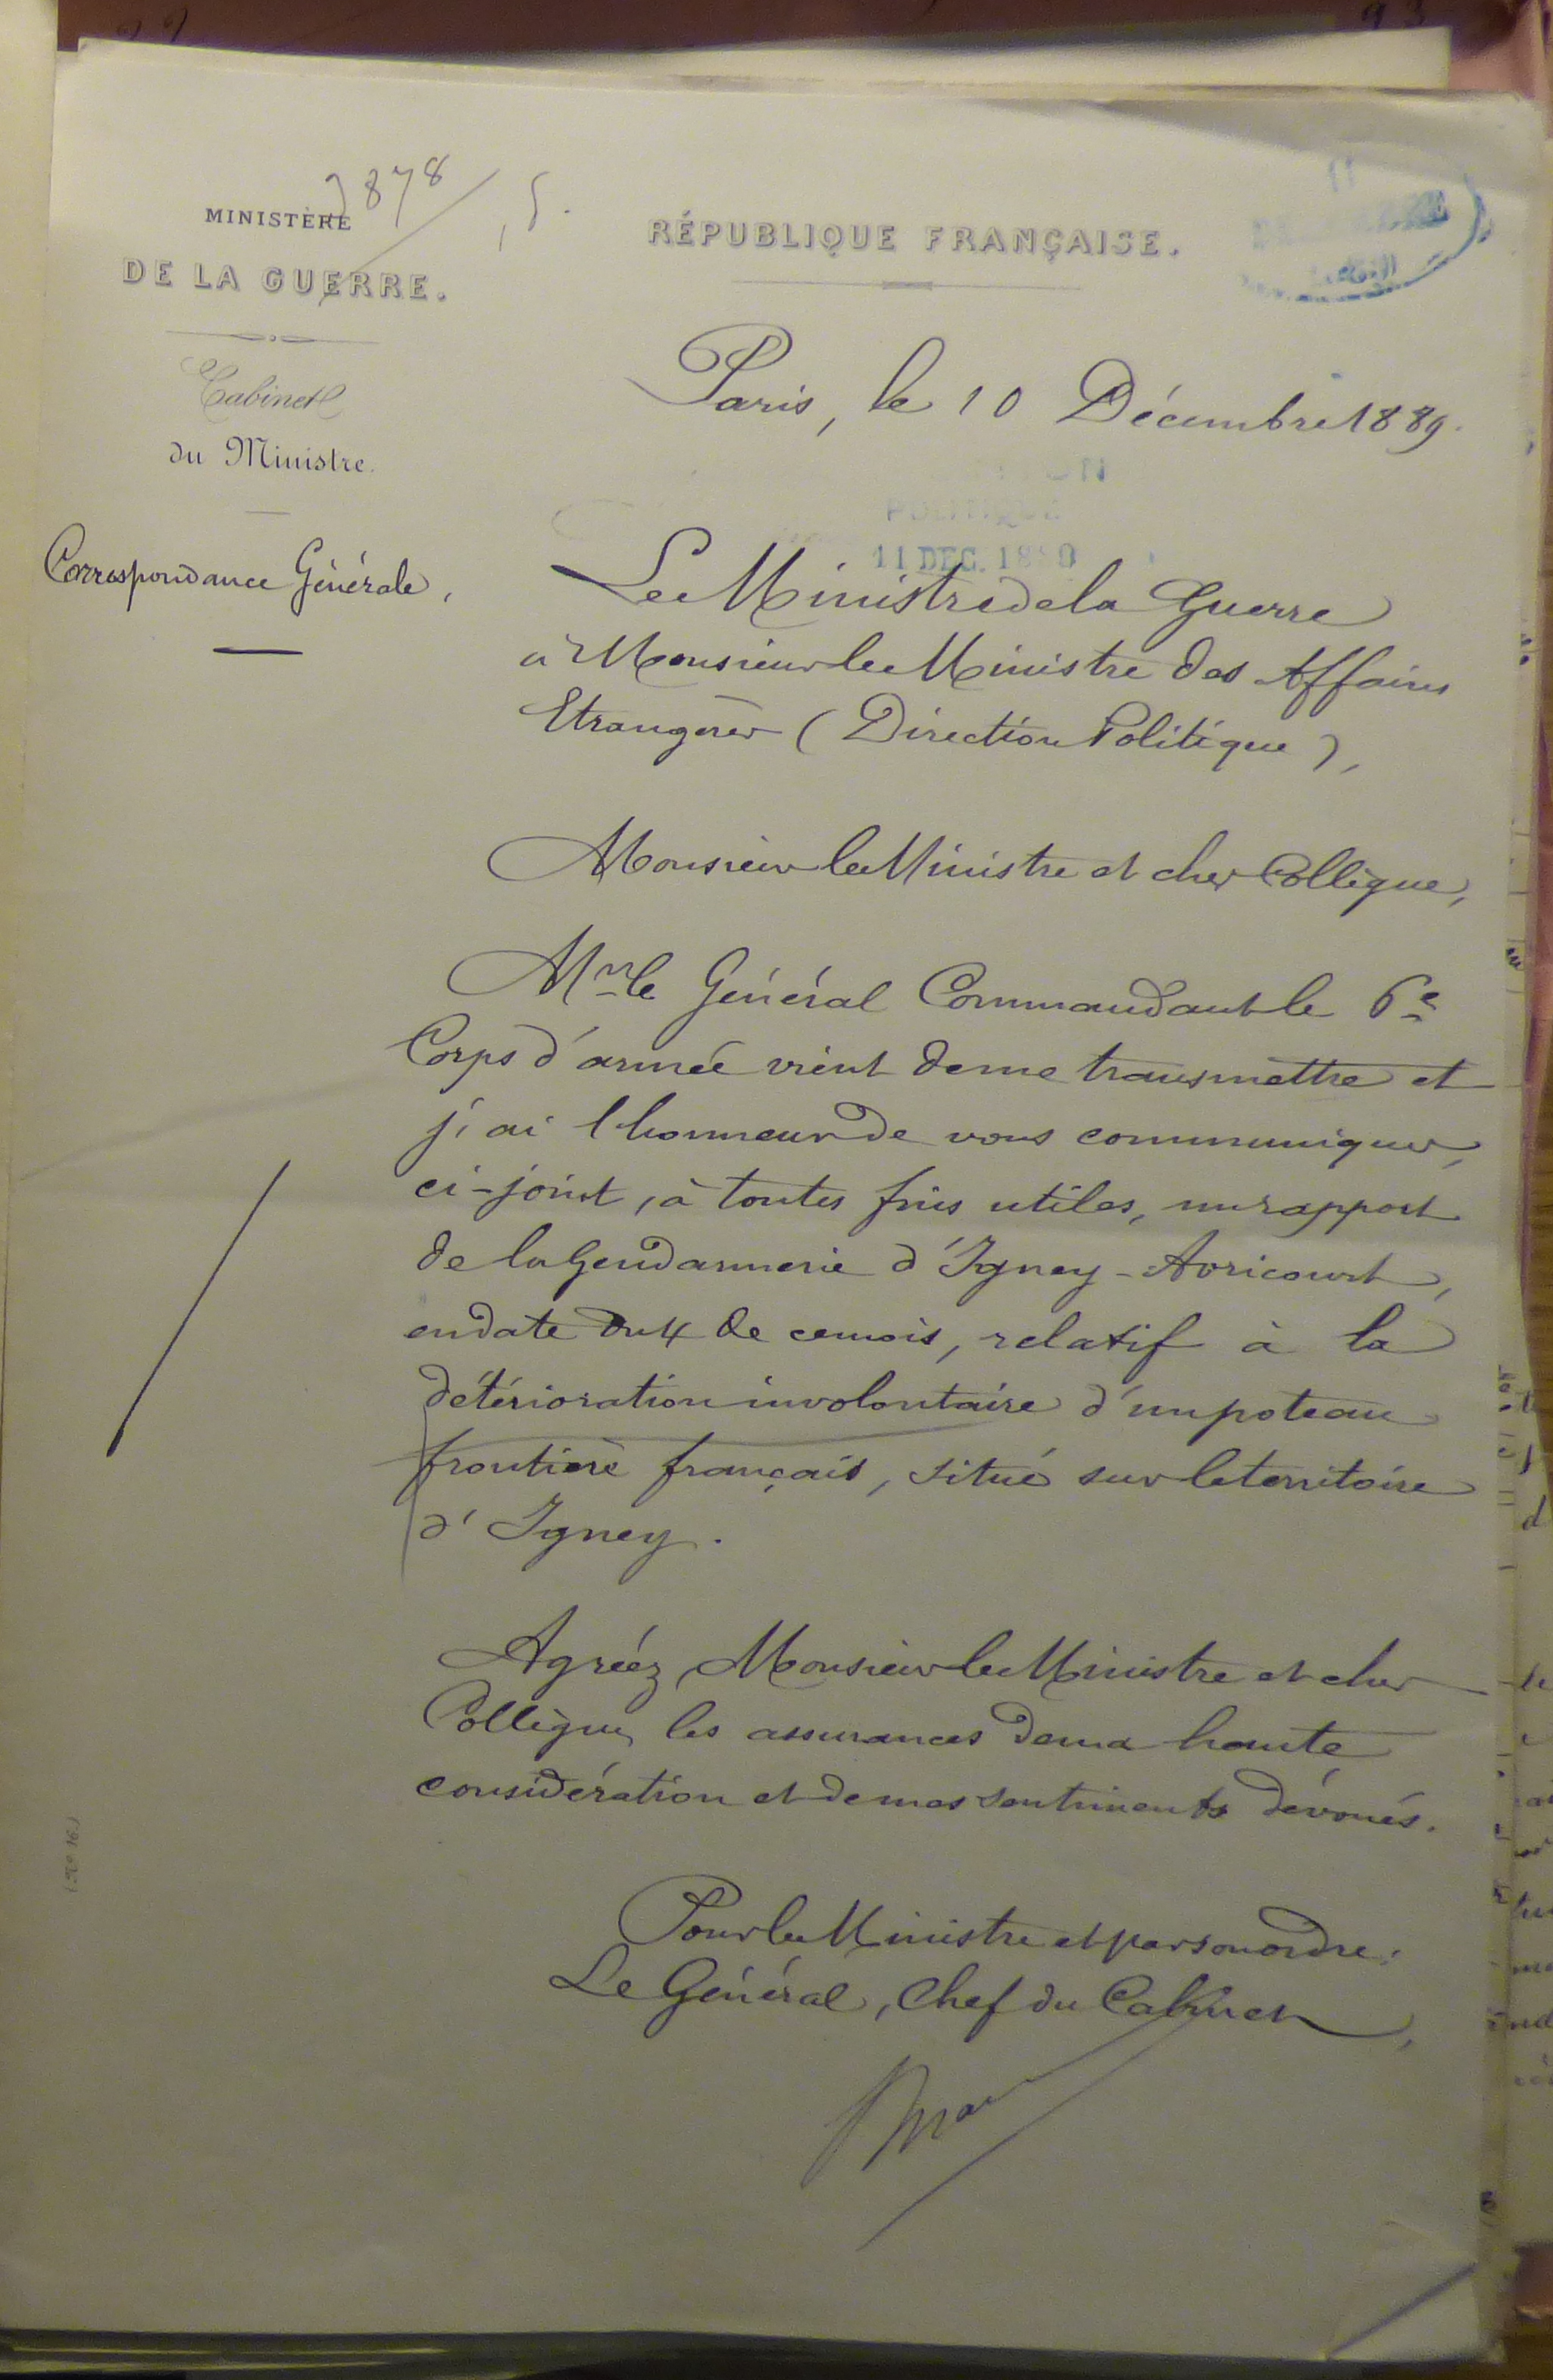 3878
MINISTÈRE
DE LA GUERRE.
Cabinet
du Ministre.
Correspondance Générale,
RÉPUBLIQUE FRANÇAISE.
Paris, le 10 Décembre 1889.
POLITIQUE
11 DEC. 1889
Le Ministre de la Guerre
à Monsieur le Ministre des Affaires
Etrangères (Direction Politique),
Monsieur le Ministre et cher Collègue,
Mr le Général Commandant le 6e
Corps d'armée vient de me transmettre et
j'ai l'honneur de vous communiquer,
ci-joint, à toutes fins utiles, un rapport
de la Gendarmerie d'Igney-Avricourt,
en date du 4 de ce mois, relatif à la
détérioration involontaire d'un poteau
frontière français, situé sur le territoire
d'Igney.
Agréez, Monsieur le Ministre et cher
Collègue, les assurances de ma haute
considération et de mes sentiments dévoués.
Pour le Ministre et par son ordre:
Le Général, Chef du Cabinet,